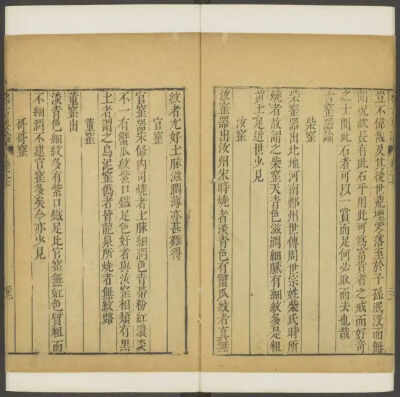 豈不偉哉及其後世荒堙零落至於子孫泯沒而無
聞况欲長有此石乎用此可爲富貴者之戒而好奇
之士聞此石者可以一賞而足何必取而去也哉
古窰器論
柴窰
柴窰器出北地河南鄭州世傳周世宗姓柴氏時所
燒者故謂之柴窰天青色滋潤細膩有細紋多是粗
黃土足近世少見
汝窰
汝窰器出汝州宋時燒者淡青色有蟹瓜紋者真無
紋者尤好土脉滋潤薄亦甚難得
官窰
官窰器宋修內司燒者土脉細潤色青帶粉紅濃淡
不一有蟹瓜紋紫口鐵足色好者與汝窰相類有黑
土者謂之烏泥窰偽者皆龍泉所燒者無紋路
董窰
董窰出
淡青色細紋多有紫口鐵足比官窰無紅色質粗而
不細潤不逮官窰多矣今亦少見
哥哥窰